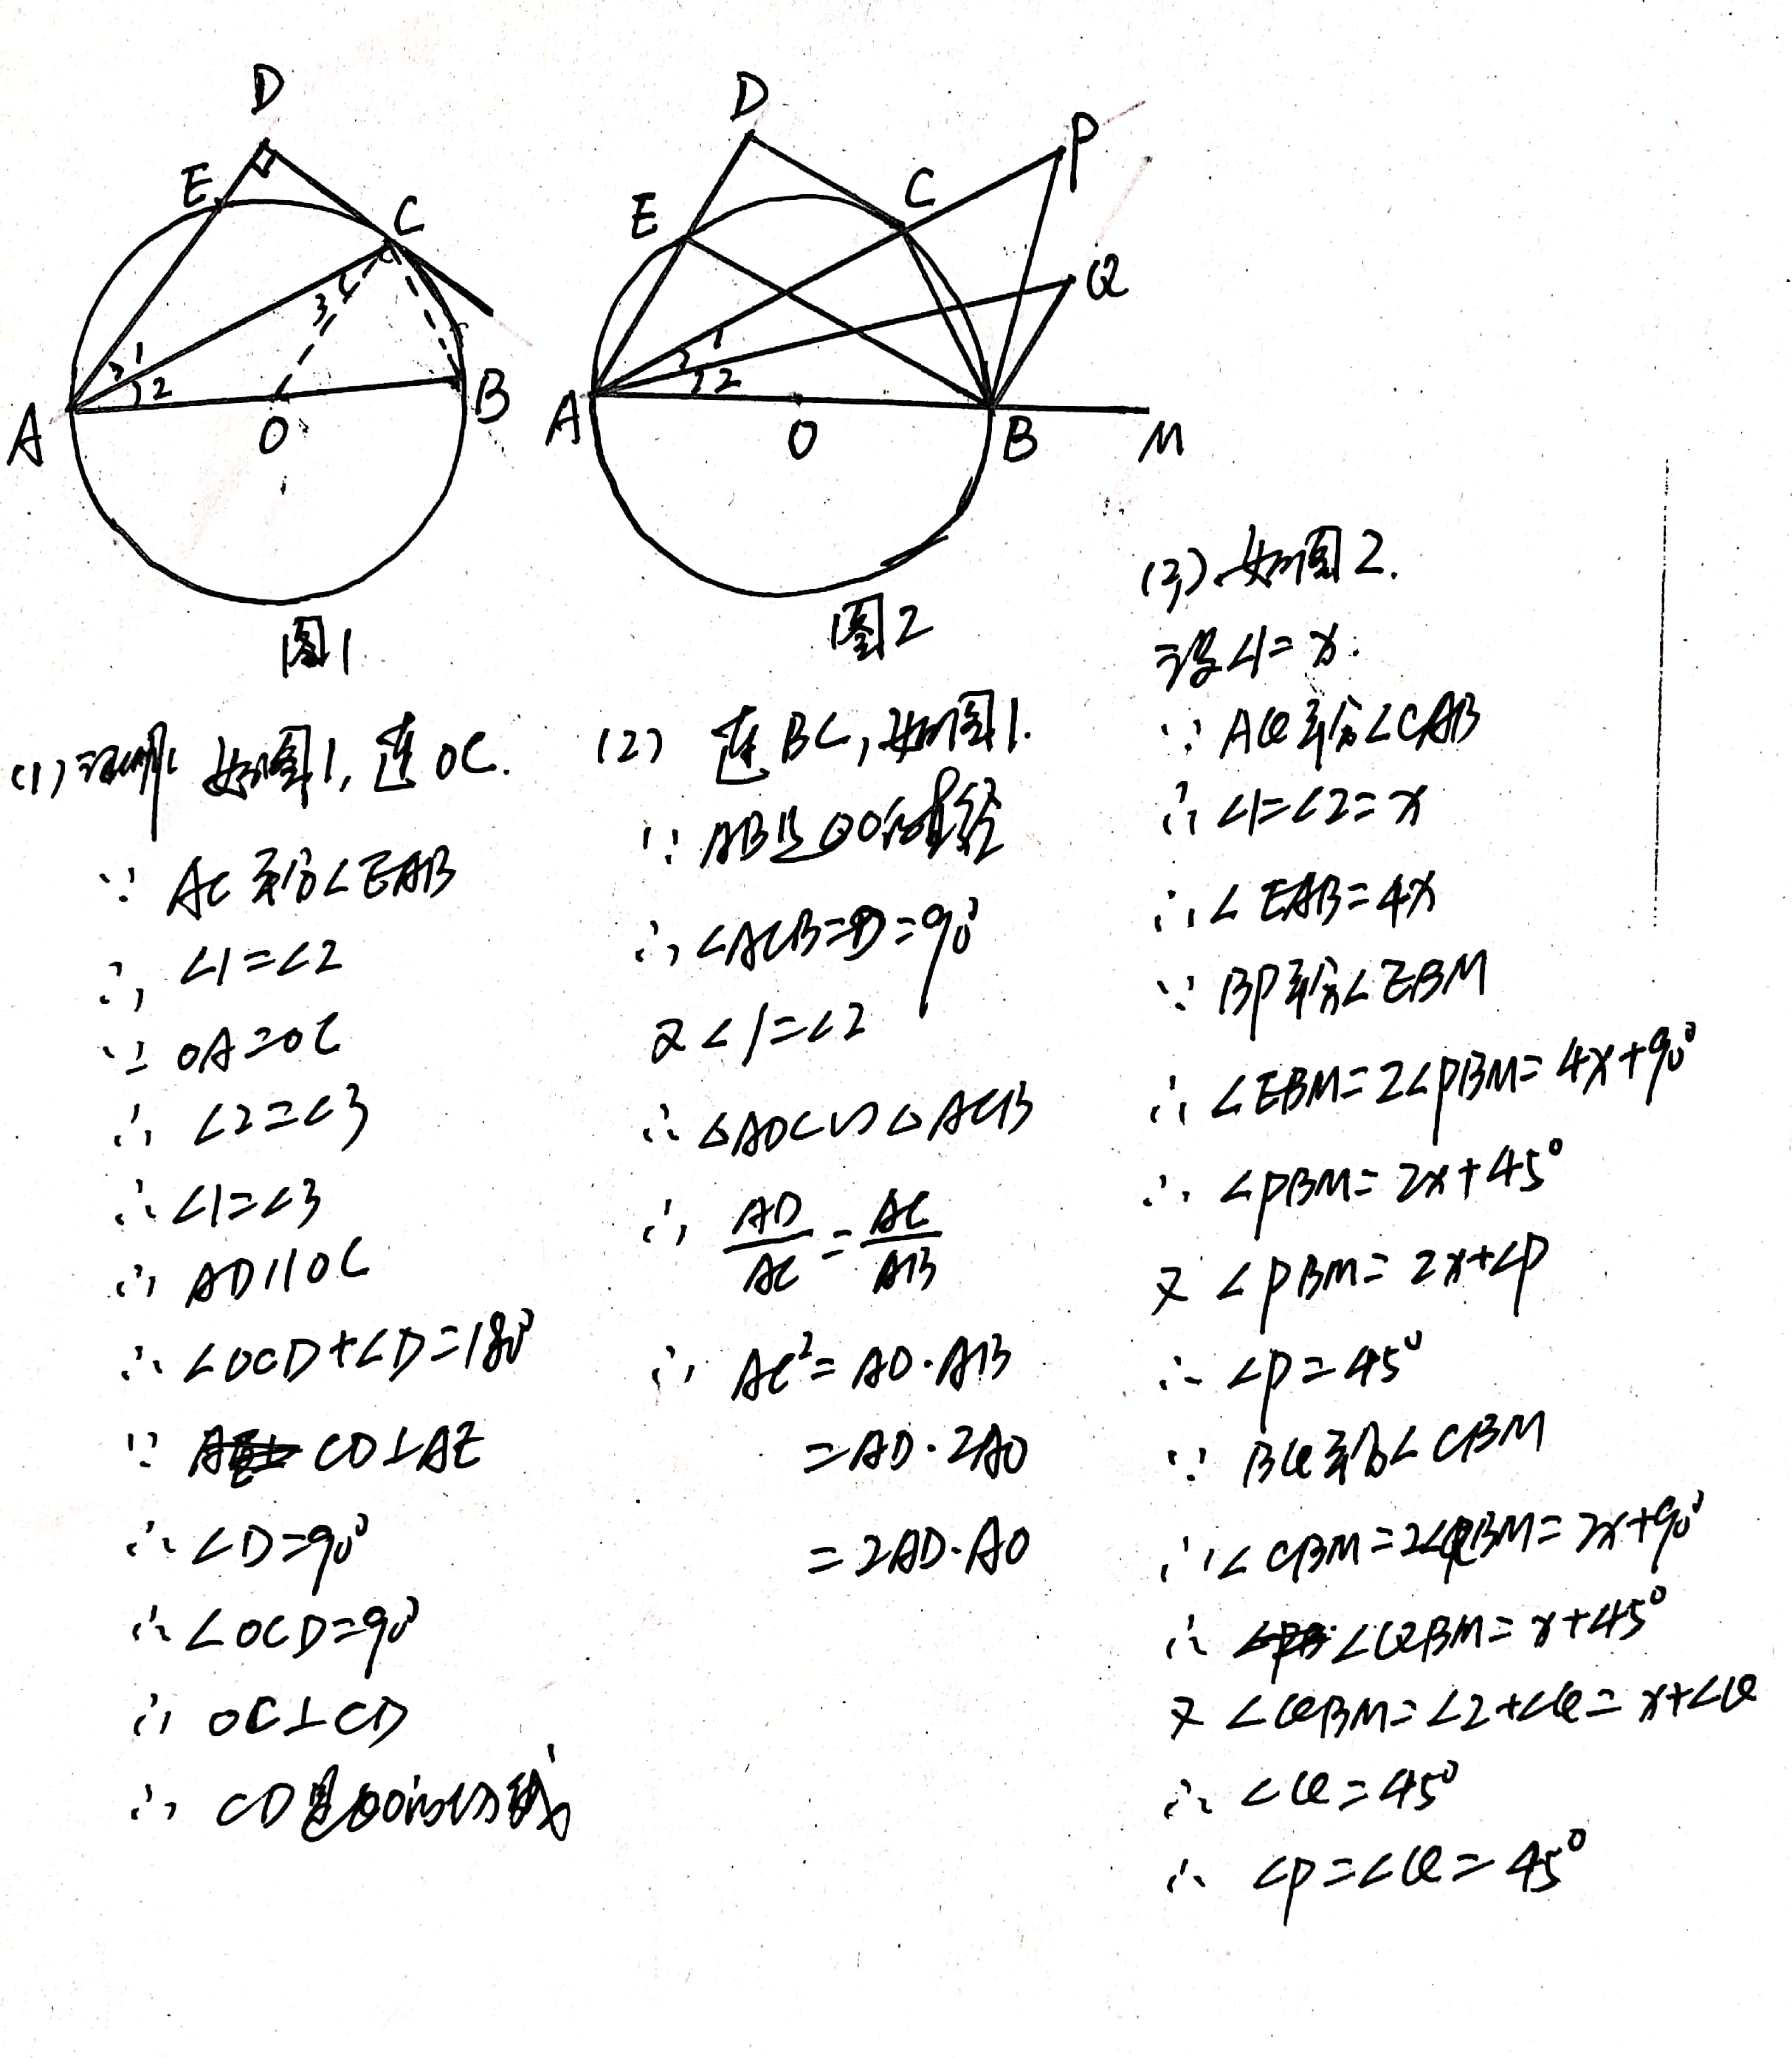 D
E
C
1
2
3
A
O
B
图1
D
P
E
C
Q
1
2
A
O
B
M
图2
(1)证明 如图1,连OC.
∵ AC平分∠EAB
∴ ∠1=∠2
∵ OA=OC
∴ ∠2=∠3
∴ ∠1=∠3
∴ AD∥OC
∴ ∠OCD+∠D=180°
∵ CD⊥AE
∴ ∠D=90°
∴ ∠OCD=90°
∴ OC⊥CD
∴ CD是⊙O的切线
(2) 连BC,如图1.
∵ AB是⊙O的直径
∴ ∠ACB=D=90°
又∠1=∠2
∴ △ADC∽△ACB
∴ AD/AC=AC/AB
∴ AC²=AD·AB
=AD·2AO
=2AD·AO
(3) 如图2.
设∠1=x.
∵ AQ平分∠CAB
∴ ∠1=∠2=x
∴ ∠EAB=4x
∵ BP平分∠EBM
∴ ∠EBM=2∠PBM=4x+90°
∴ ∠PBM=2x+45°
又 ∠PBM=2x+∠P
∴ ∠P=45°
∵ BQ平分∠CBM
∴ ∠CBM=2∠QBM=2x+90°
∴ ∠QBM=x+45°
又 ∠QBM=∠2+∠Q=x+∠Q
∴ ∠Q=45°
∴ ∠P=∠Q=45°